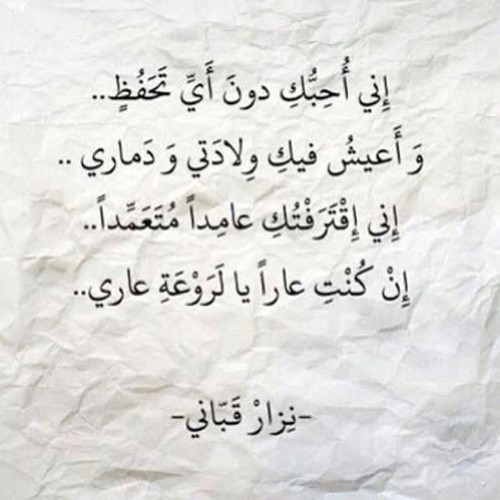 إِني أُحِبُّكِ دونَ أَيِّ تَحَفُظٍ..
وَ أَعيشُ فيكِ وِلادَتي وَ دَماري ..
إِني إِقْتَرَفْتُكِ عامِداً مُتَعَمِّداً..
إِنْ كُنْتِ عاراً يا لَرَوْعَةِ عاري..
-نِزارْ قَبّاني-